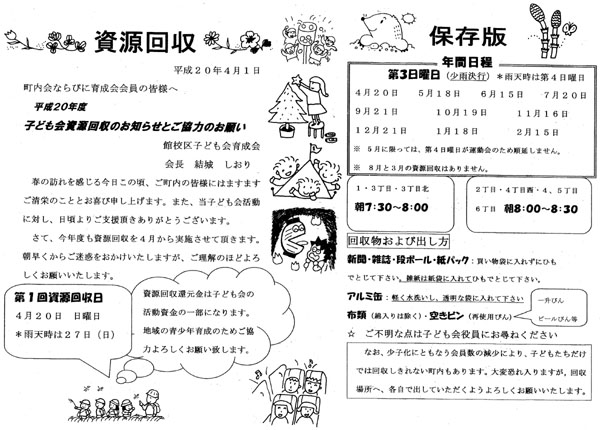 資源回収
平成20年4月1日
町内会ならびに育成会会員の皆様へ
平成20年度
子ども会資源回収のお知らせとご協力のお願い
館校区子ども会育成会
会長　結城　しおり
春の訪れを感じる今日この頃、ご町内の皆様にはますます
ご清栄のこととお喜び申し上げます。また、当子ども会活動
に対し、日頃よりご支援頂きありがとうございます。
さて、今年度も資源回収を4月から実施させて頂きます。
朝早くからご迷惑をおかけいたしますが、ご理解のほどよろ
しくお願いいたします。
第1回資源回収日
4月20日　日曜日
＊雨天時は27日（日）
資源回収還元金は子ども会の
活動資金の一部になります。
地域の青少年育成のためご協
力よろしくお願い致します。
保存版
年間日程
第3日曜日（少雨決行）＊雨天時は第4日曜日
4月20日　5月18日　6月15日　7月20日
9月21日　10月19日　11月16日
12月21日　1月18日　2月15日
※ 5月に限っては、第4日曜日が運動会のため順延しません。
※ 8月と3月の資源回収はありません。
1・3丁目・3丁目北
朝7:30～8:00
2丁目・4丁目西・4、5丁目
6丁目　朝8:00～8:30
回収物および出し方
新聞・雑誌・段ボール・紙パック：買い物袋に入れずにひも
でとじて下さい。雑紙は紙袋に入れてひもでとじて下さい。
アルミ缶：軽く水洗いし、透明な袋に入れて下さい
布類（綿入りは除く）・空きビン（再使用びん）
一升びん
ビールびん等
☆　ご不明な点は子ども会役員にお尋ねください
なお、少子化にともなう会員数の減少により、子どもたちだけ
では回収しきれない町内もあります。大変恐れ入りますが、回収
場所へ、各自で出していただくようよろしくお願いいたします。